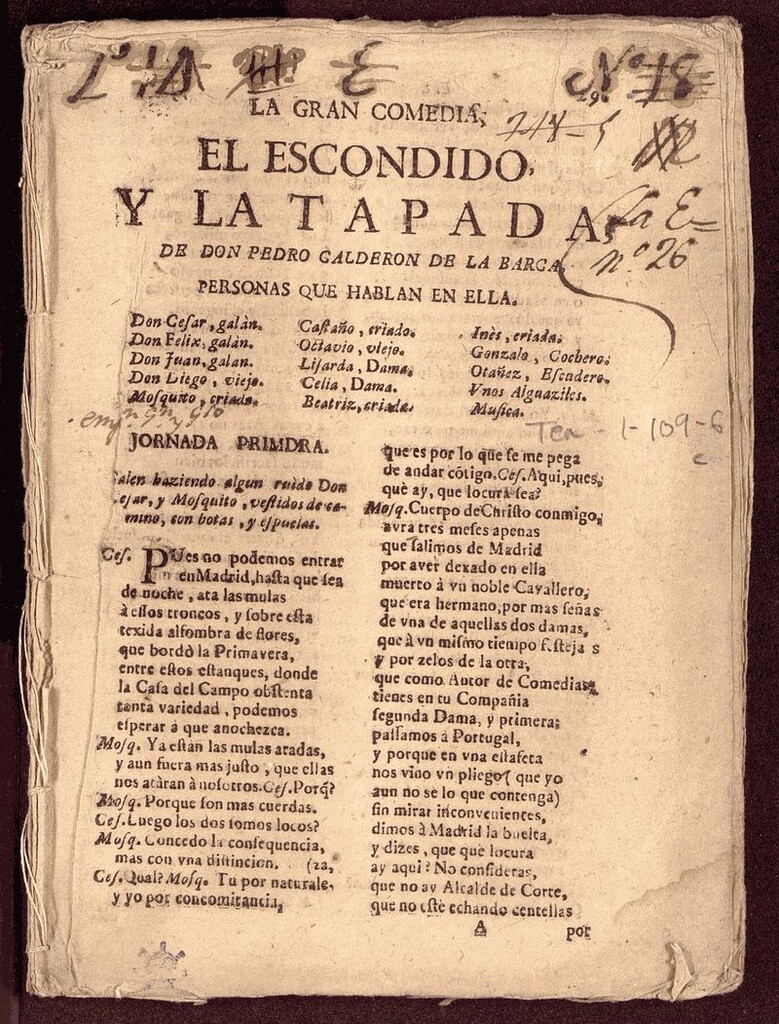 Nº 18
29.
LA GRAN COMEDIA,
EL ESCONDIDO,
Y LA TAPADA,
la E=
nº 26
DE DON PEDRO CALDERON DE LA BARCA.
PERSONAS QUE HABLAN EN ELLA.
Don Cesar, galàn.
Don Felix, galàn.
Don Juan, galan.
Don Diego, viejo.
Mosquito, criado.
Castaño, criado.
Octavio, viejo.
Lisarda, Dama.
Celia, Dama.
Beatriz, criada.
Inès, criada.
Gonzalo, Cochero.
Otañez, Escudero.
Vnos Alguaziles.
Musica.
Tea - 1-109-6
c
JORNADA PRIMDRA.
Salen haziendo algun ruido Don
Cesar, y Mosquito, vestidos de ca-
mino, con botas, y espuelas.
Ces. PUes no podemos entrar
en Madrid, hasta que sea
de noche, ata las mulas
à essos troncos, y sobre esta
texida alfombra de flores,
que bordò la Primavera,
entre estos estanques, donde
la Casa del Campo obstenta
tanta variedad, podemos
esperar à que anochezca.
Mosq. Ya estàn las mulas atadas,
y aun fuera mas justo, que ellas
nos atàran à nosotros. Ces. Porq̃?
Mosq. Porque son mas cuerdas.
Ces. Luego los dos somos locos?
Mosq. Concedo la consequencia,
mas con vna distincion. (za,
Ces. Qual? Mosq. Tu por naturale-
y yo por concomitancia,
que es por lo que se me pega
de andar cõtigo. Ces. Aqui, pues,
què ay, que locura sea?
Mosq. Cuerpo de Christo conmigo,
avrà tres meses apenas
que salimos de Madrid
por aver dexado en ella
muerto à vn noble Cavallero,
que era hermano, por mas señas
de vna de aquellas dos damas,
que à vn mismo tiempo festejas
y por zelos de la otra,
que como Autor de Comedias,
tienes en tu Compañia
segunda Dama, y primera;
passamos à Portugal,
y porque en vna estafeta
nos vino vn pliego ( que yo
aun no se lo que contenga)
sin mirar inconvenientes,
dimos à Madrid la buelta,
y dizes, que què locura
ay aqui? No consideras,
que no ay Alcalde de Corte,
que no estè echando centellas
A por